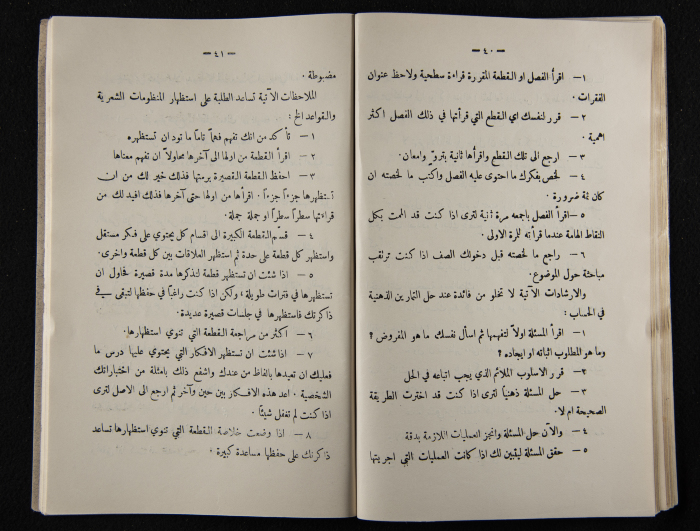 — ٤٠ —
١ — اقرأ الفصل او القطعة المقررة قراءة سطحية ولاحظ عنوان
الفقرات .
٢ — قرر لنفسك اي القطع التي قرأتها في ذلك الفصل اكثر
اهمية .
٣ — ارجع الى تلك القطع واقرأها ثانية بتروّ وامعان .
٤ — لخص بفكرك ما احتوى عليه الفصل واكتب ما لخصته ان
كان ثمة ضرورة .
٥ — اقرأ الفصل باجمعه مرة ثانية لترى اذا كنت قد الممت بكل
النقاط الهامة عندما قرأته للمرة الاولى .
٦ — راجع ما لخصته قبل دخولك الصف اذا كنت ترتقب
مباحثة حول الموضوع .
والارشادات الآتية لا تخلو من فائدة عند حل التمارين الذهنية
في الحساب :
١ — اقرأ المسئلة اولاً لتفهمها ثم اسأل نفسك ما هو المفروض ؟
وما هو المطلوب اثباته او ايجاده ؟
٢ — قرر الاسلوب الملائم الذي يجب اتباعه في الحل
٣ — حل المسئلة ذهنياً لترى اذا كنت قد اخترت الطريقة
الصحيحة ام لا .
٤ — والآن حل المسئلة وانجز العمليات اللازمة بدقة
٥ — حقق المسئلة ليتبين لك اذا كانت العمليات التي اجريتها
— ٤١ —
مضبوطة .
الملاحظات الآتية تساعد الطلبة على استظهار المنظومات الشعرية
والقواعد الخ :
١ — تأكد من انك تفهم فهماً تامّاً ما تود ان تستظهره
٢ — اقرأ القطعة من اولها الى آخرها محاولاً ان تفهم معناها
٣ — احفظ القطعة القصيرة برمتها فذلك خير لك من ان
تستظهرها جزءاً جزءاً . اقرأها من اولها حتى آخرها فذلك افيد لك من
قراءتها سطراً سطراً او جملة جملة .
٤ — قسّم القطعة الكبيرة الى اقسام كل يحتوي على فكر مستقل
واستظهر كل قطعة على حدة ثم استظهر العلاقات بين كل قطعة واخرى .
٥ — اذا شئت ان تستظهر قطعة لتذكرها مدة قصيرة فحاول ان
تستظهرها في فترات طويلة ، ولكن اذا كنت راغباً في حفظها لتبقى في
ذاكرتك فاستظهرها في جلسات قصيرة عديدة .
٦ — اكثر من مراجعة القطعة التي تنوي استظهارها .
٧ — اذا شئت ان تستظهر الافكار التي يحتوي عليها درس ما
فعليك ان تعيدها بالفاظ من عندك واشفع ذلك بامثلة من اختباراتك
الشخصية . اعد هذه الافكار بين حين وآخر ثم ارجع الى الاصل لترى
اذا كنت لم تغفل شيئاً .
٨ — اذا وضعت خلاصة القطعة التي تنوي استظهارها تساعد
ذاكرتك على حفظها مساعدة كبيرة .